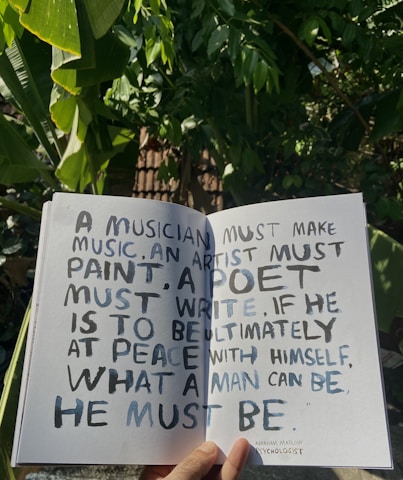 A MUSICIAN MUST MAKE
MUSIC, AN ARTIST MUST
PAINT, A POET
MUST WRITE, IF HE
IS TO BE ULTIMATELY
AT PEACE WITH HIMSELF.
WHAT A MAN CAN BE,
HE MUST BE."
ABRAHAM MASLOW
PSYCHOLOGIST